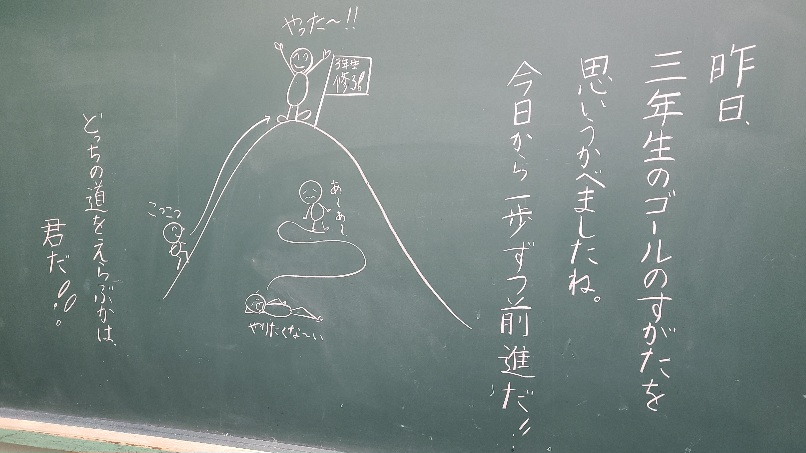 昨日、
三年生のゴールのすがたを
思いうかべましたね。
今日から一歩ずつ前進だ!!
やった〜!!
3年生
修了!
あ〜あ〜
やりたくな〜い
こつこつ
どっちの道をえらぶかは、
君だ!!